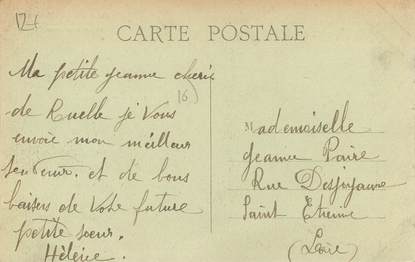 CARTE POSTALE
Ma petite Jeanne chérie
16)
de Ruelle je Vous
envoie mon meilleur
souvenir. et de bons
baisers de Votre future
petite sœur.
Hélène.
Mademoiselle
Jeanne Paire
Rue
Saint Etienne
(Loire)